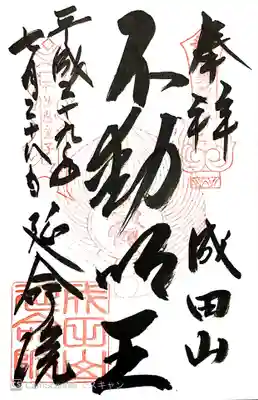 奉拝
成田山
不動明王
平成二十九年
七月二十八日
延命院